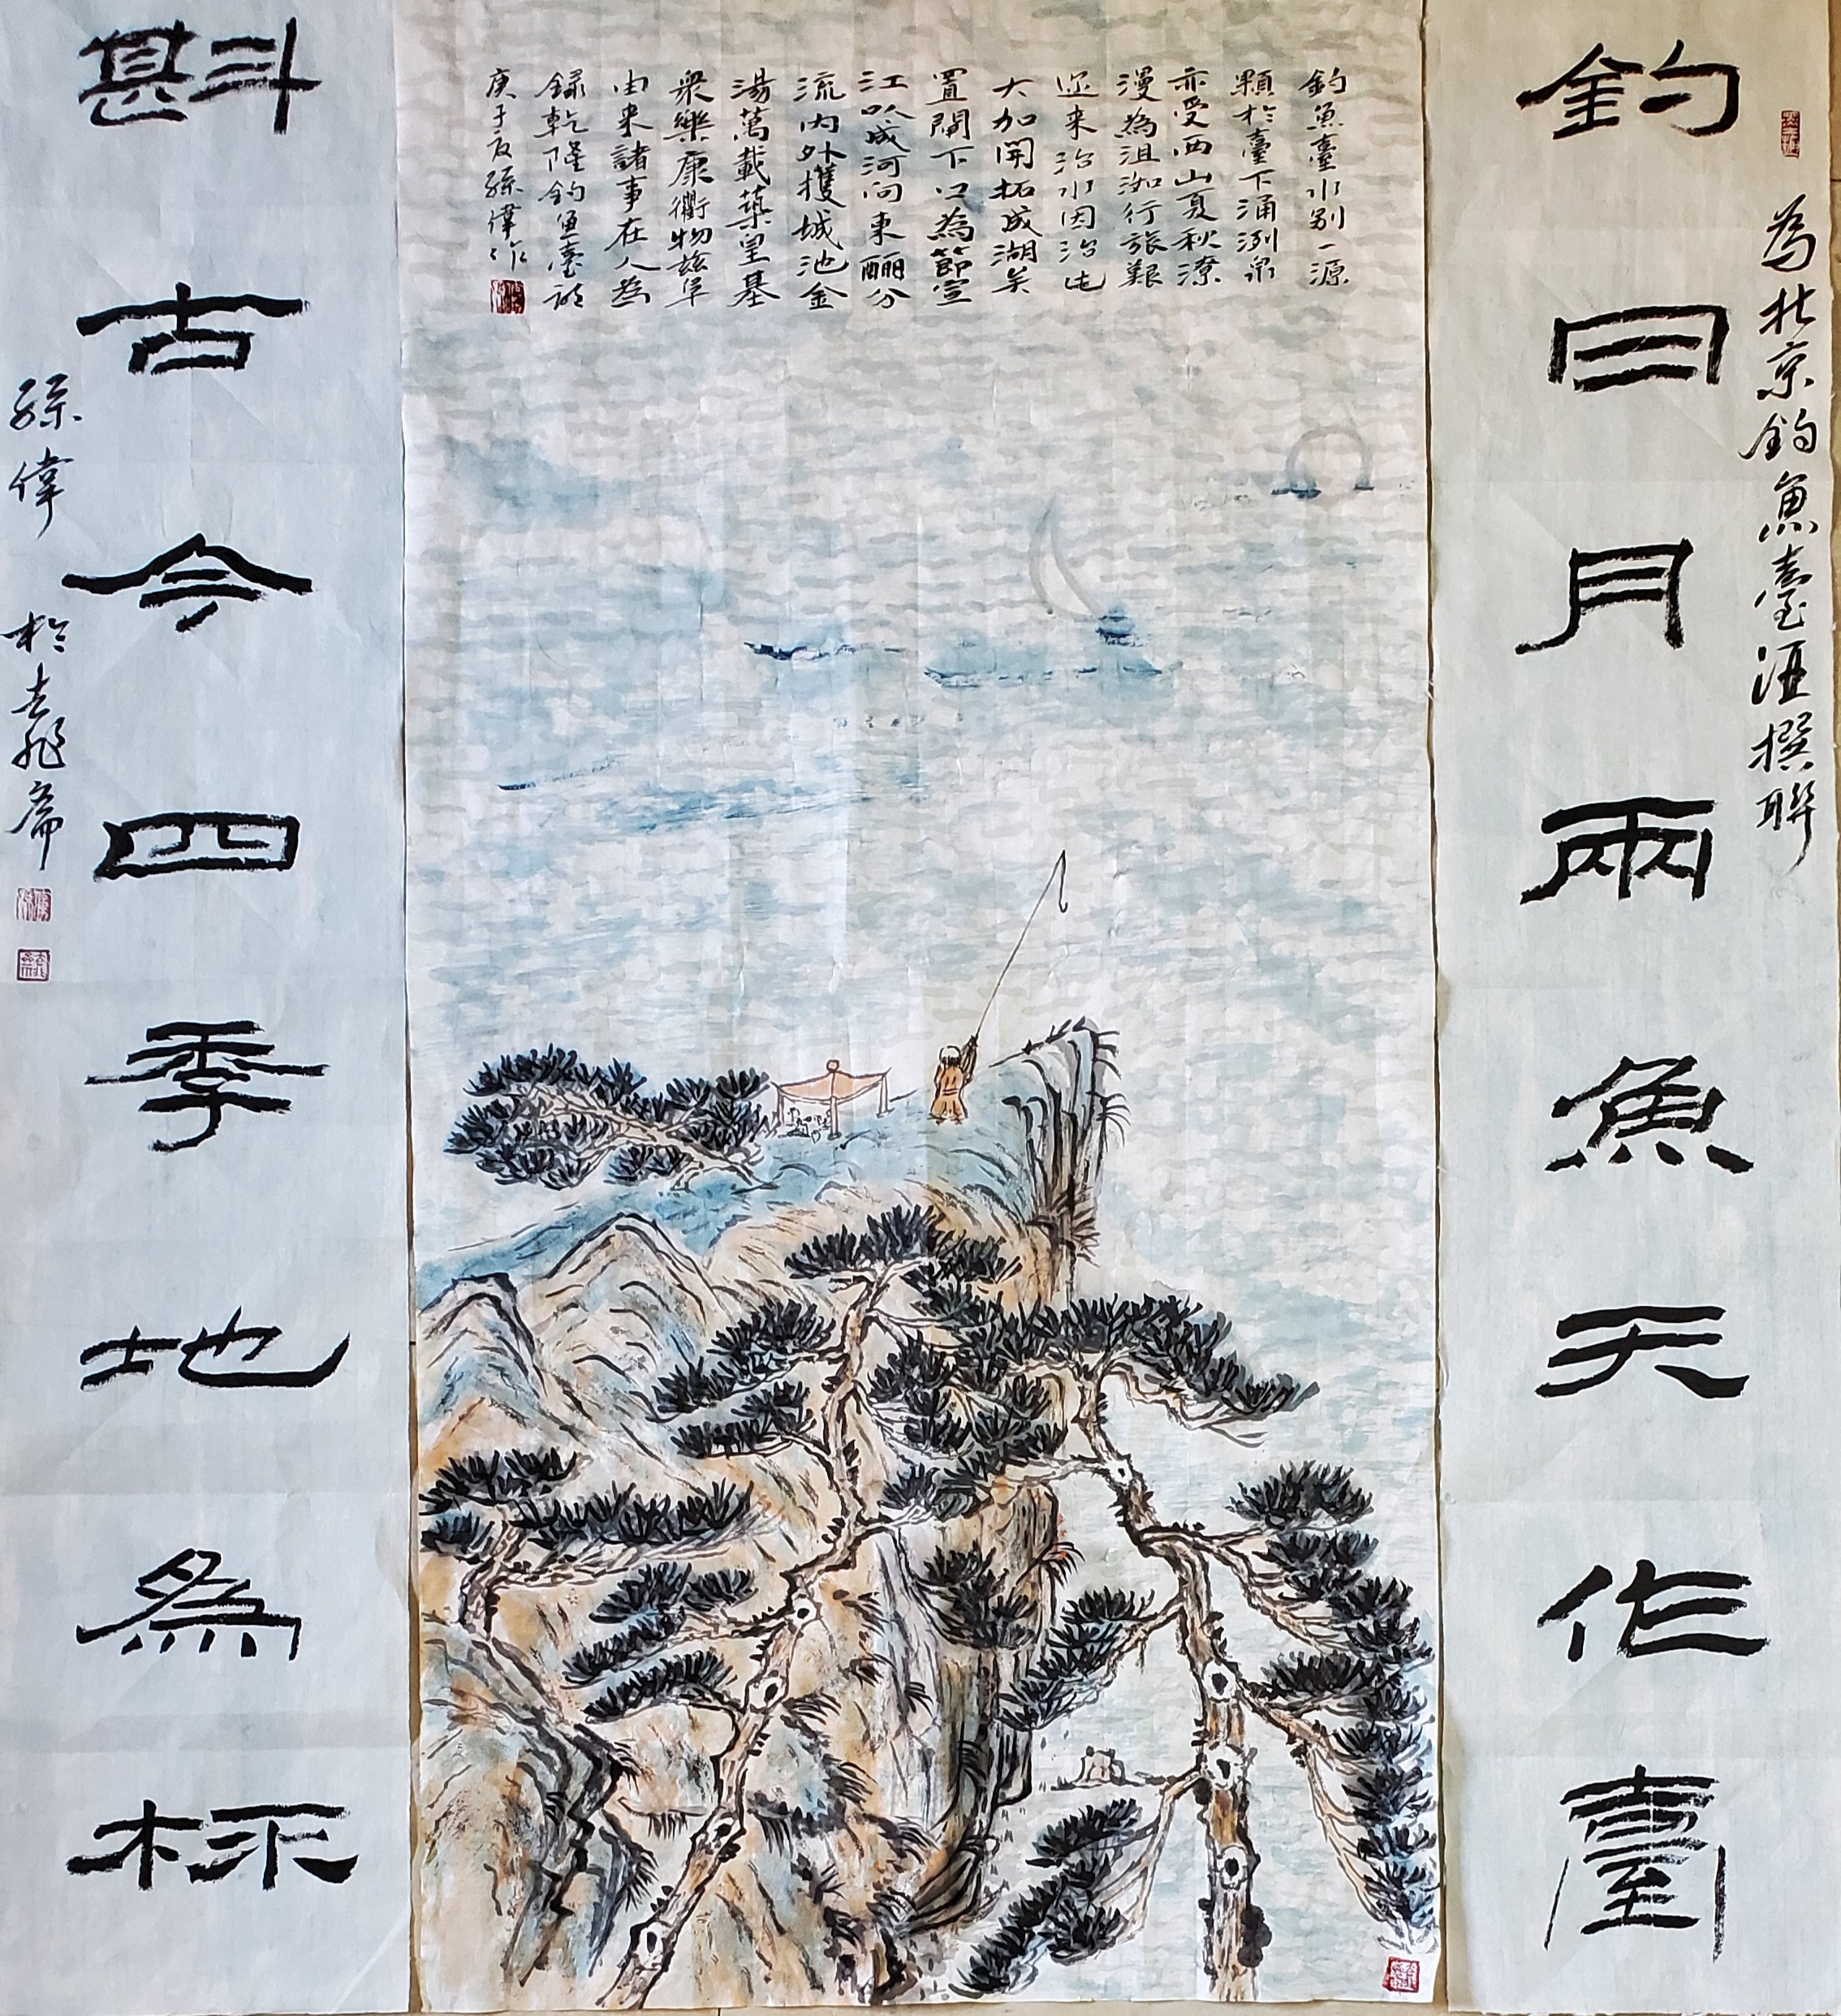 為北京釣魚臺酒撰聯
釣日月兩魚天作臺
釣魚臺水別一源
顆於臺下涌洌泉
亦受西山夏秋潦
漫為沮洳行旅艱
迩来治水因治此
大加開拓成湖矣
置閘下口為節宣
江以成河向東酾分
流内外擭城池金
湯萬載築皇基
衆樂康衢物茲阜
由来諸事在人為
錄乾隆釣魚臺詩
庚子夏孫偉作
斟古今四季地為杯
孫偉 於 齋